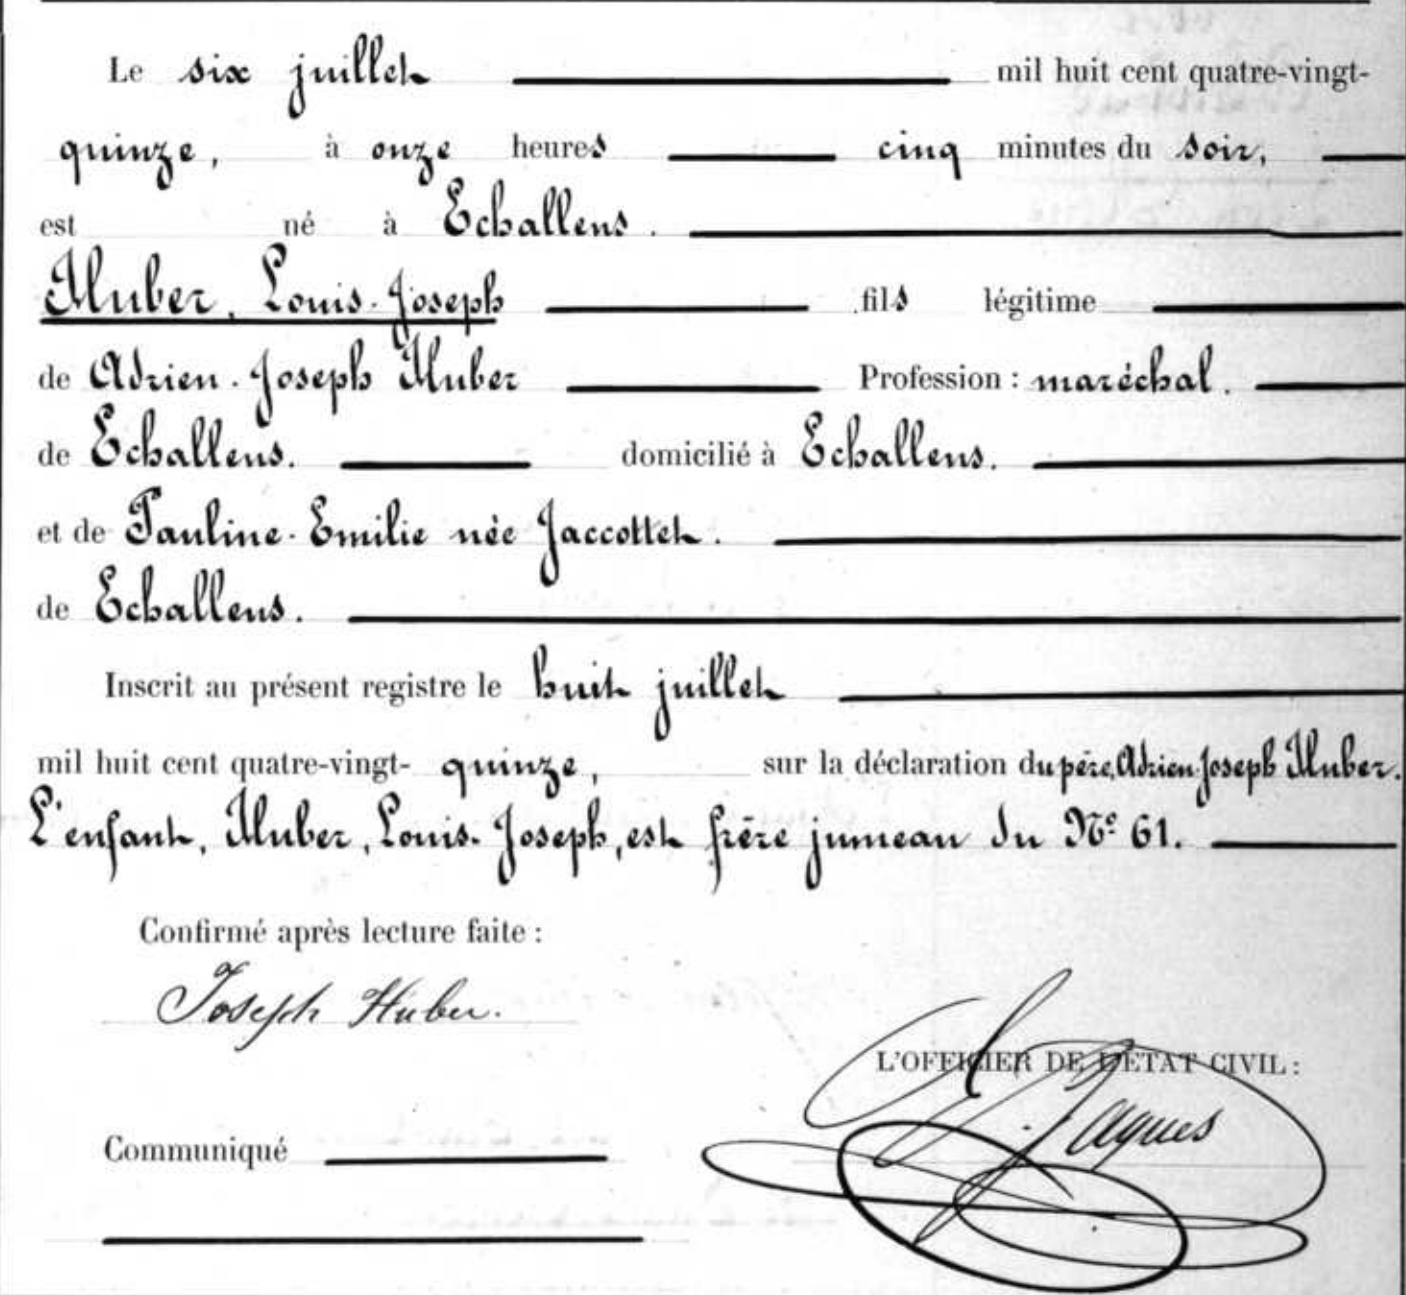 Le six juillet mil huit cent quatre-vingt-
quinze, à onze heures cinq minutes du soir,
est né à Echallens.
Huber, Louis-Joseph fils légitime
de Adrien-Joseph Huber Profession : maréchal.
de Echallens. domicilié à Echallens.
et de Pauline-Emilie née Jaccottet.
de Echallens.
Inscrit au présent registre le huit juillet
mil huit cent quatre-vingt- quinze, sur la déclaration du père, Adrien-Joseph Huber.
L'enfant, Huber, Louis-Joseph, est frère jumeau du No 61.
Confirmé après lecture faite :
Joseph Huber.
L'OFFICIER DE L'ÉTAT CIVIL :
Jaques
Communiqué